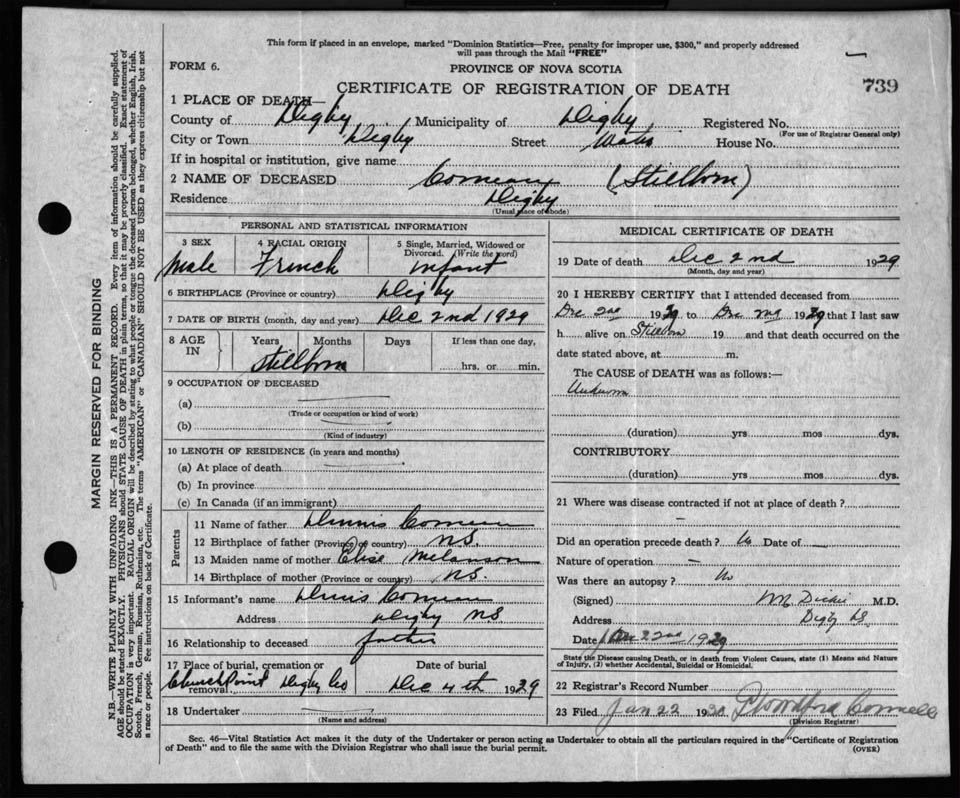 This form if placed in an envelope, marked "Dominion Statistics—Free, penalty for improper use, $300," and properly addressed
will pass through the Mail "FREE"
FORM 6.
PROVINCE OF NOVA SCOTIA
CERTIFICATE OF REGISTRATION OF DEATH
739
1 PLACE OF DEATH—
County of Digby, Municipality of Digby, Registered No.
(For use of Registrar General only)
City or Town Digby Street House No.
If in hospital or institution, give name
2 NAME OF DECEASED Comeau (Stillborn)
Residence Digby
(Usual place of abode)
PERSONAL AND STATISTICAL INFORMATION
3 SEX
Male
4 RACIAL ORIGIN
French
5 Single, Married, Widowed or
Divorced. (Write the word)
Infant
6 BIRTHPLACE (Province or country) Digby
7 DATE OF BIRTH (month, day and year) Dec 2nd 1929
8 AGE
IN
Years Months Days If less than one day,
Stillborn
hrs. or min.
9 OCCUPATION OF DECEASED
(a)
(Trade or occupation or kind of work)
(b)
(Kind of industry)
10 LENGTH OF RESIDENCE (in years and months)
(a) At place of death
(b) In province
(c) In Canada (if an immigrant)
Parents
11 Name of father Dennis Comeau
12 Birthplace of father (Province or country) N.S.
13 Maiden name of mother Elise Melanson
14 Birthplace of mother (Province or country) N.S.
15 Informant's name Dennis Comeau
Address Digby NS
16 Relationship to deceased father
17 Place of burial, cremation or
removal Church Point Digby Co
Date of burial
Dec 4th 1929
18 Undertaker
(Name and address)
MEDICAL CERTIFICATE OF DEATH
19 Date of death Dec 2nd 1929
(Month, day and year)
20 I HEREBY CERTIFY that I attended deceased from
Dec 2nd 1929 to Dec 2nd 1929 that I last saw
h alive on Stillborn 19 and that death occurred on the
date stated above, at m.
The CAUSE of DEATH was as follows:—
Unknown
(duration) yrs mos dys.
CONTRIBUTORY
(duration) yrs mos dys.
21 Where was disease contracted if not at place of death?
Did an operation precede death? No Date of
Nature of operation —
Was there an autopsy? No
(Signed) M.D.
Address Digby NS
Date 22nd 1929
State the Disease causing Death, or in death from Violent Causes, state (1) Means and Nature
of Injury, (2) whether Accidental, Suicidal or Homicidal.
22 Registrar's Record Number
23 Filed Jan 22 1930
(Division Registrar)
Sec. 46—Vital Statistics Act makes it the duty of the Undertaker or person acting as Undertaker to obtain all the particulars required in the "Certificate of Registration
of Death" and to file the same with the Division Registrar who shall issue the burial permit.
(OVER)
MARGIN RESERVED FOR BINDING
N.B.—WRITE PLAINLY WITH UNFADING INK—THIS IS A PERMANENT RECORD. Every item of information should be carefully supplied.
AGE should be stated EXACTLY. PHYSICIANS should STATE CAUSE OF DEATH in plain terms, so that it may be properly classified. Exact statement of
OCCUPATION is very important. RACIAL ORIGIN will be described by stating to what people or tongue the deceased person belonged, whether English, Irish,
Scotch, French, German, Russian, Ruthenian, etc. The terms "AMERICAN" or "CANADIAN" SHOULD NOT BE USED as they express citizenship but not
a race or people. See instructions on back of Certificate.